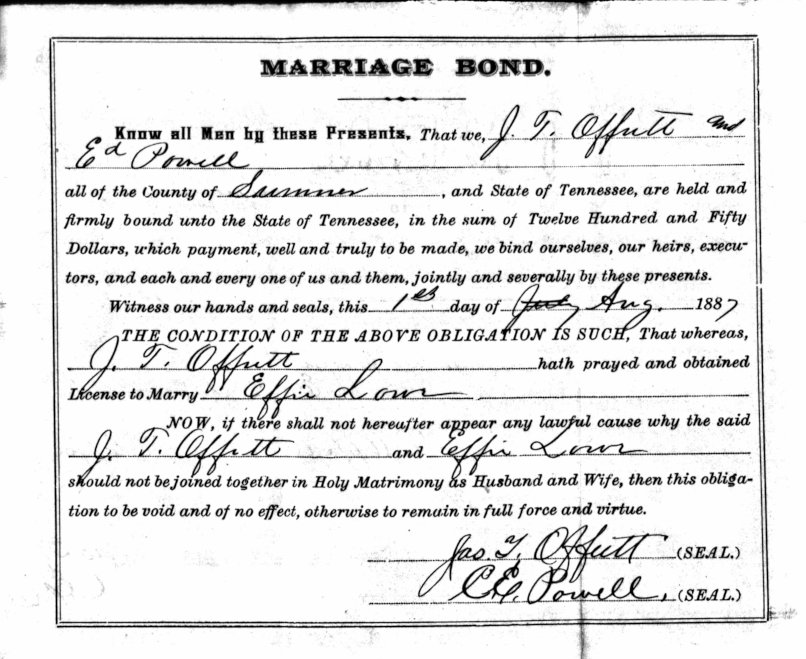 MARRIAGE BOND.
Know all Men by these Presents, That we, J. T. Offutt and
Ed Powell
all of the County of Sumner, and State of Tennessee, are held and
firmly bound unto the State of Tennessee, in the sum of Twelve Hundred and Fifty
Dollars, which payment, well and truly to be made, we bind ourselves, our heirs, execu-
tors, and each and every one of us and them, jointly and severally by these presents.
Witness our hands and seals, this 1st day of July Aug. 1887
THE CONDITION OF THE ABOVE OBLIGATION IS SUCH, That whereas,
J. T. Offutt hath prayed and obtained
License to Marry Effie
NOW, if there shall not hereafter appear any lawful cause why the said
J. T. Offutt and Effie
should not be joined together in Holy Matrimony as Husband and Wife, then this obliga-
tion to be void and of no effect, otherwise to remain in full force and virtue.
Jas. T. Offutt (SEAL.)
Powell. (SEAL.)